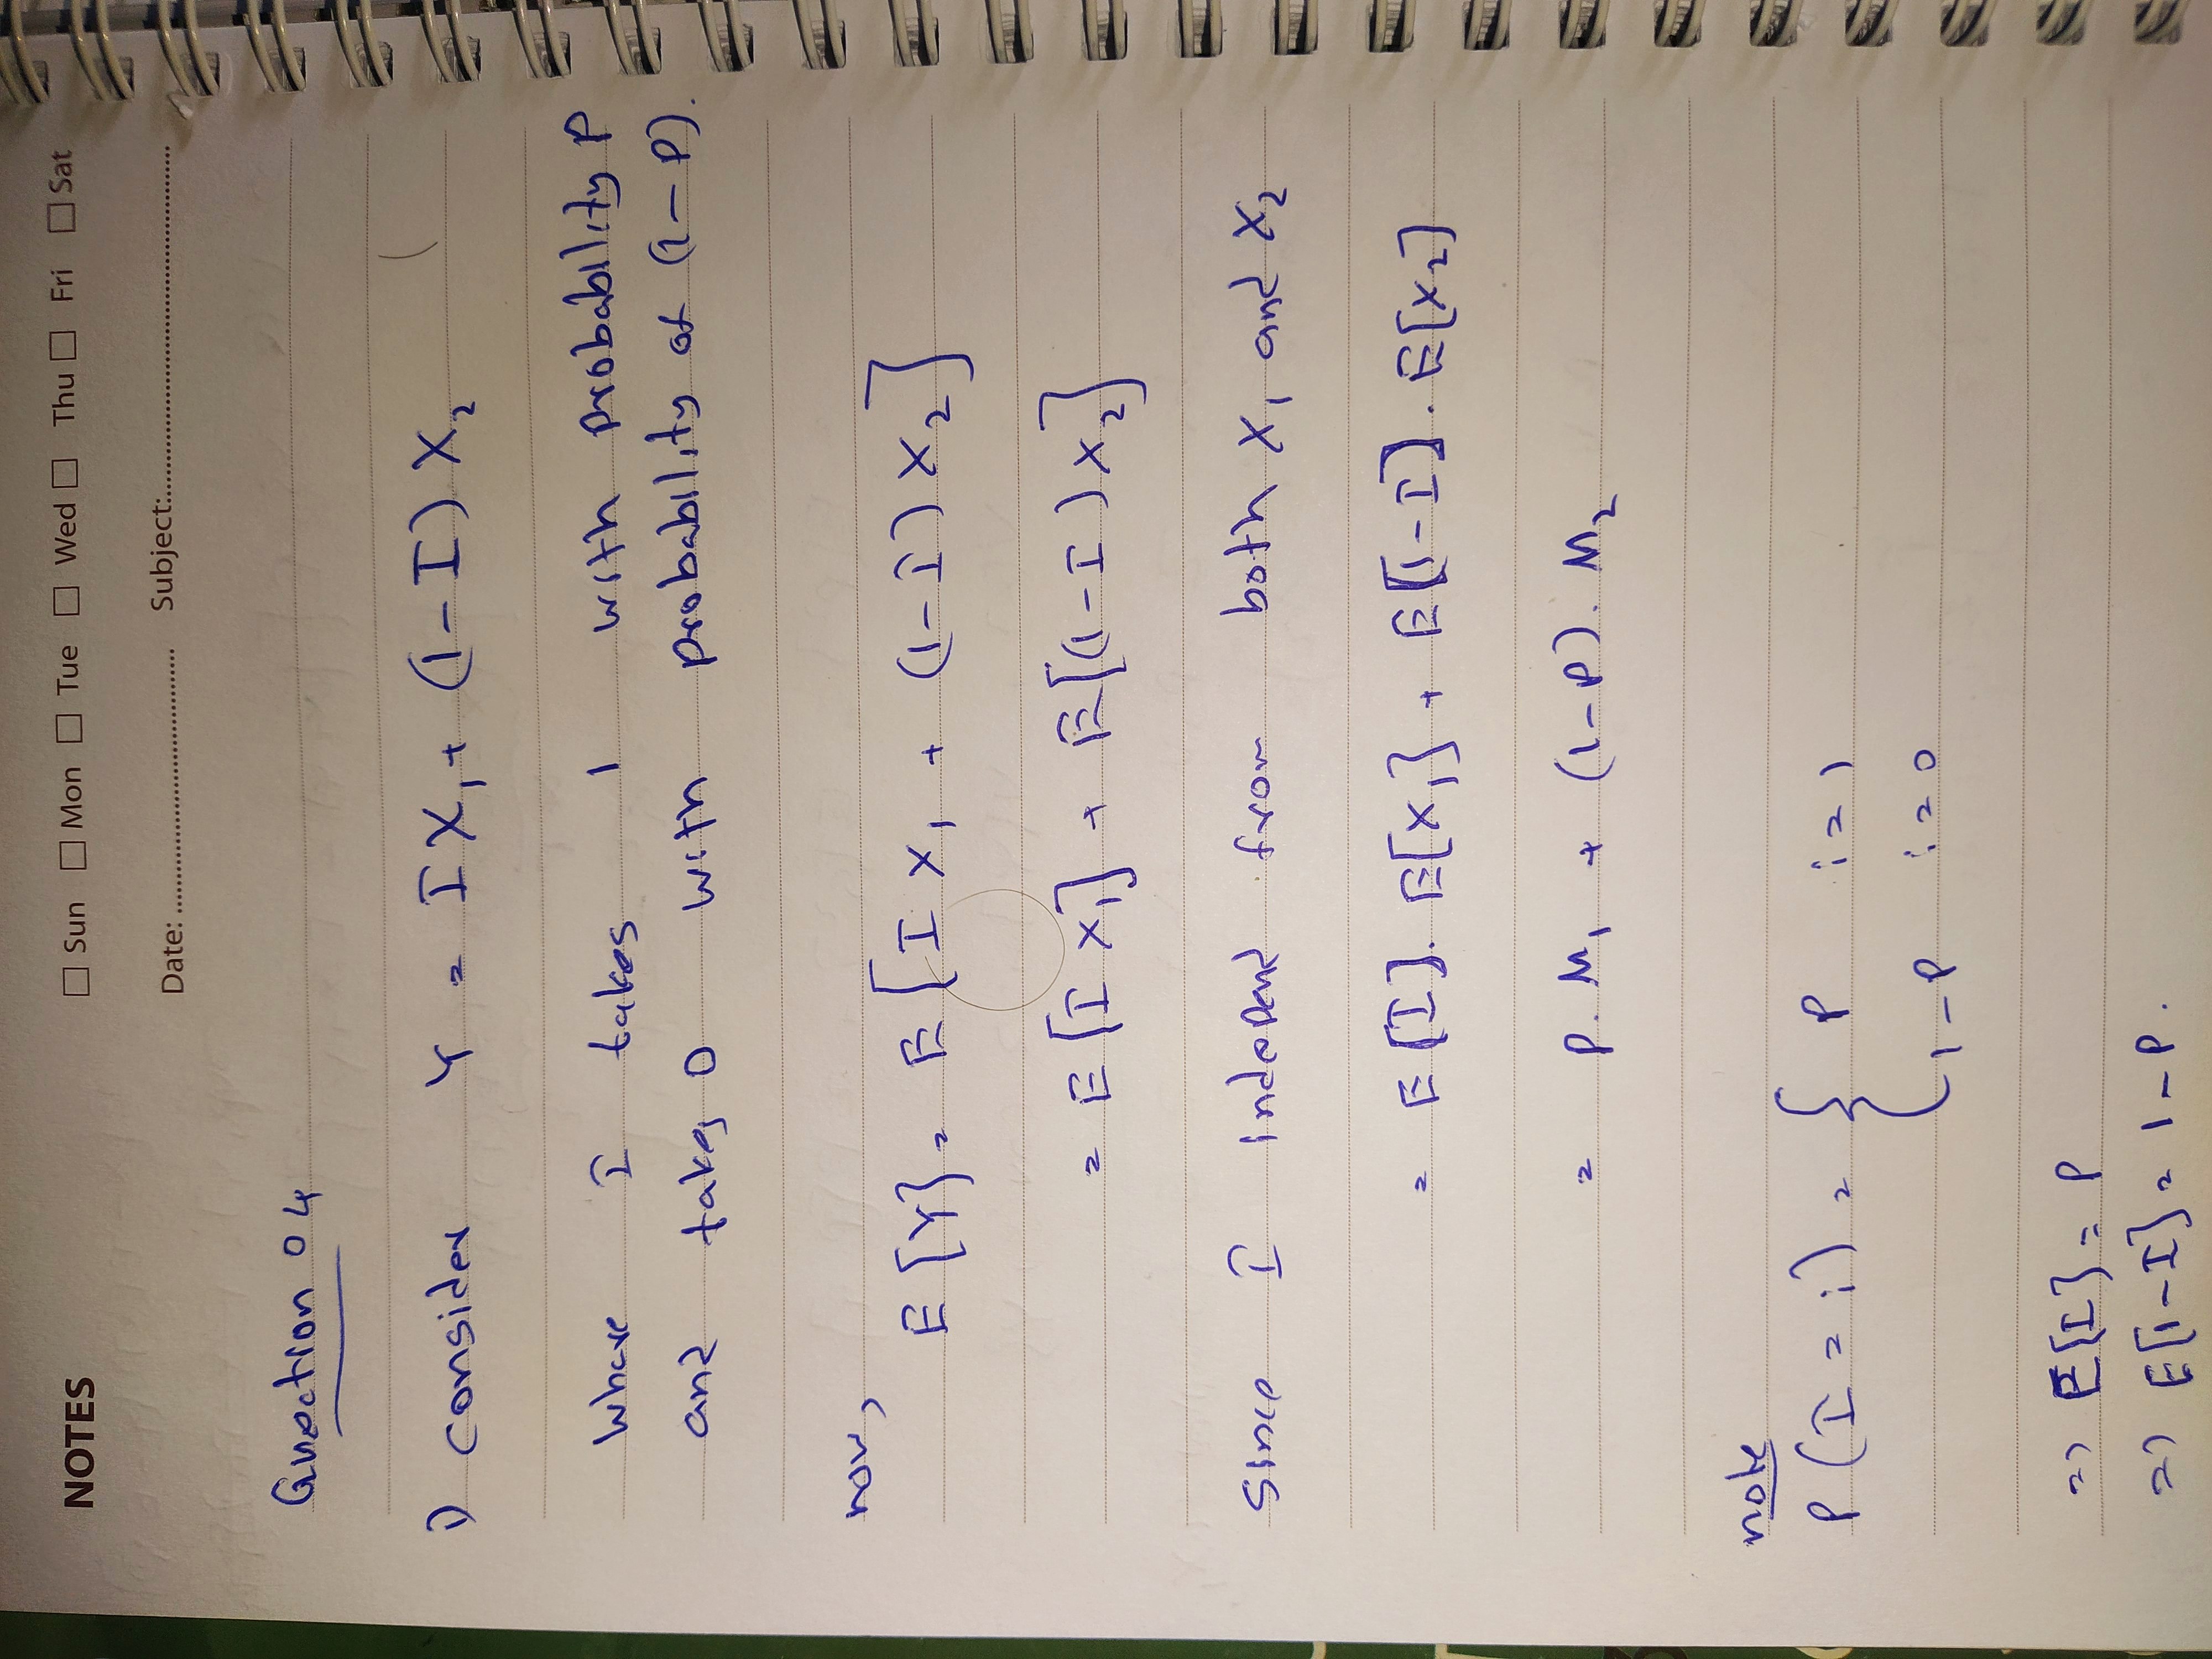 NOTES
☐ Sun ☐ Mon ☐ Tue ☐ Wed ☐ Thu ☐ Fri ☐ Sat
Date: .................................... Subject:................................................
Question 04
1) consider Y = I X₁ + (1 - I) X₂
where I takes 1 with probability P
and takes 0 with probability of (1 - P).
now,
E[Y] = E[I X₁ + (1 - I) X₂]
= E[I X₁] + E[(1 - I) X₂]
Since I independ from both X₁ and X₂
= E[I]. E[X₁] + E[1 - I]. E[X₂]
= P. M₁ + (1 - P). M₂
note
P(I = i) = { P i = 1
1 - P i = 0
=> E[I] = P
=> E[1 - I] = 1 - P.